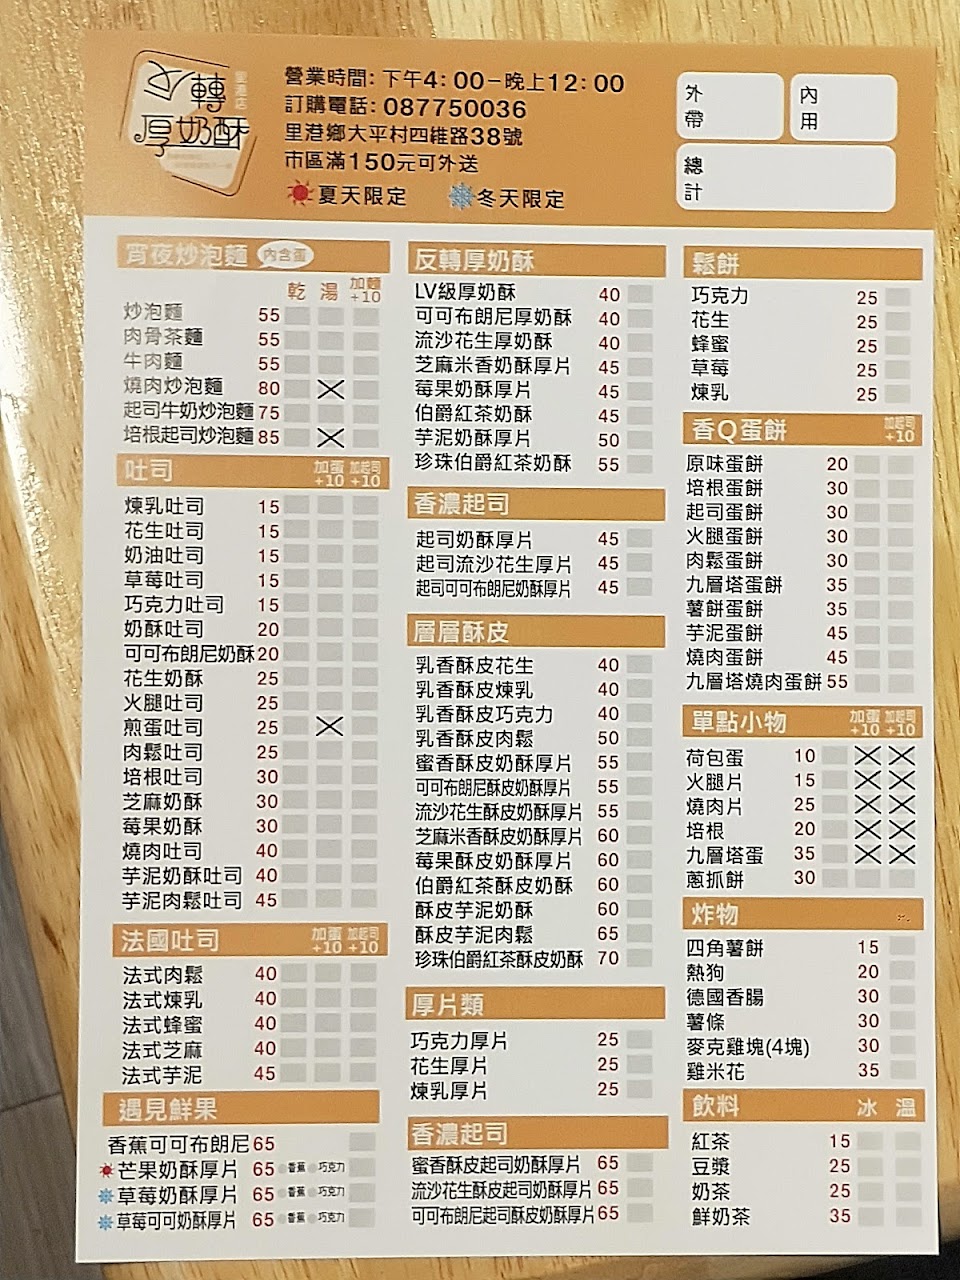 反轉
厚奶酥
里港店
營業時間：下午4：00－晚上12：00
訂購電話：087750036
里港鄉大平村四維路38號
市區滿150元可外送
夏天限定 冬天限定
外帶
內用
總計
宵夜炒泡麵 內含蛋
乾 湯 加麵+10
炒泡麵 55
肉骨茶麵 55
牛肉麵 55
燒肉炒泡麵 80
起司牛奶炒泡麵 75
培根起司炒泡麵 85
吐司 加蛋+10 加起司+10
煉乳吐司 15
花生吐司 15
奶油吐司 15
草莓吐司 15
巧克力吐司 15
奶酥吐司 20
可可布朗尼奶酥 20
花生奶酥 25
火腿吐司 25
煎蛋吐司 25
肉鬆吐司 25
培根吐司 30
芝麻奶酥 30
莓果奶酥 30
燒肉吐司 40
芋泥奶酥吐司 40
芋泥肉鬆吐司 45
法國吐司 加蛋+10 加起司+10
法式肉鬆 40
法式煉乳 40
法式蜂蜜 40
法式芝麻 40
法式芋泥 45
遇見鮮果
香蕉可可布朗尼 65
芒果奶酥厚片 65 香蕉 巧克力
草莓奶酥厚片 65 香蕉 巧克力
草莓可可奶酥厚片 65 香蕉 巧克力
反轉厚奶酥
LV級厚奶酥 40
可可布朗尼厚奶酥 40
流沙花生厚奶酥 40
芝麻米香奶酥厚片 45
莓果奶酥厚片 45
伯爵紅茶奶酥 45
芋泥奶酥厚片 50
珍珠伯爵紅茶奶酥 55
香濃起司
起司奶酥厚片 45
起司流沙花生厚片 45
起司可可布朗尼奶酥厚片 45
層層酥皮
乳香酥皮花生 40
乳香酥皮煉乳 40
乳香酥皮巧克力 40
乳香酥皮肉鬆 50
蜜香酥皮奶酥厚片 55
可可布朗尼酥皮奶酥厚片 55
流沙花生酥皮奶酥厚片 55
芝麻米香酥皮奶酥厚片 60
莓果酥皮奶酥厚片 60
伯爵紅茶酥皮奶酥 60
酥皮芋泥奶酥 60
酥皮芋泥肉鬆 65
珍珠伯爵紅茶酥皮奶酥 70
厚片類
巧克力厚片 25
花生厚片 25
煉乳厚片 25
香濃起司
蜜香酥皮起司奶酥厚片 65
流沙花生酥皮起司奶酥厚片 65
可可布朗尼起司酥皮奶酥厚片 65
鬆餅
巧克力 25
花生 25
蜂蜜 25
草莓 25
煉乳 25
香Q蛋餅 加起司+10
原味蛋餅 20
培根蛋餅 30
起司蛋餅 30
火腿蛋餅 30
肉鬆蛋餅 30
九層塔蛋餅 35
薯餅蛋餅 35
芋泥蛋餅 45
燒肉蛋餅 45
九層塔燒肉蛋餅 55
單點小物 加蛋+10 加起司+10
荷包蛋 10
火腿片 15
燒肉片 25
培根 20
九層塔蛋 35
蔥抓餅 30
炸物
四角薯餅 15
熱狗 20
德國香腸 30
薯條 30
麥克雞塊(4塊) 30
雞米花 35
飲料 冰 溫
紅茶 15
豆漿 25
奶茶 25
鮮奶茶 35